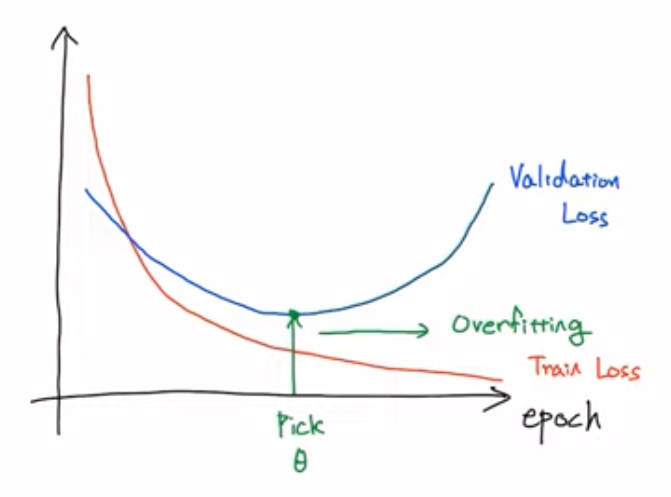 Validation
Loss
Overfitting
Train Loss
epoch
Pick
θ